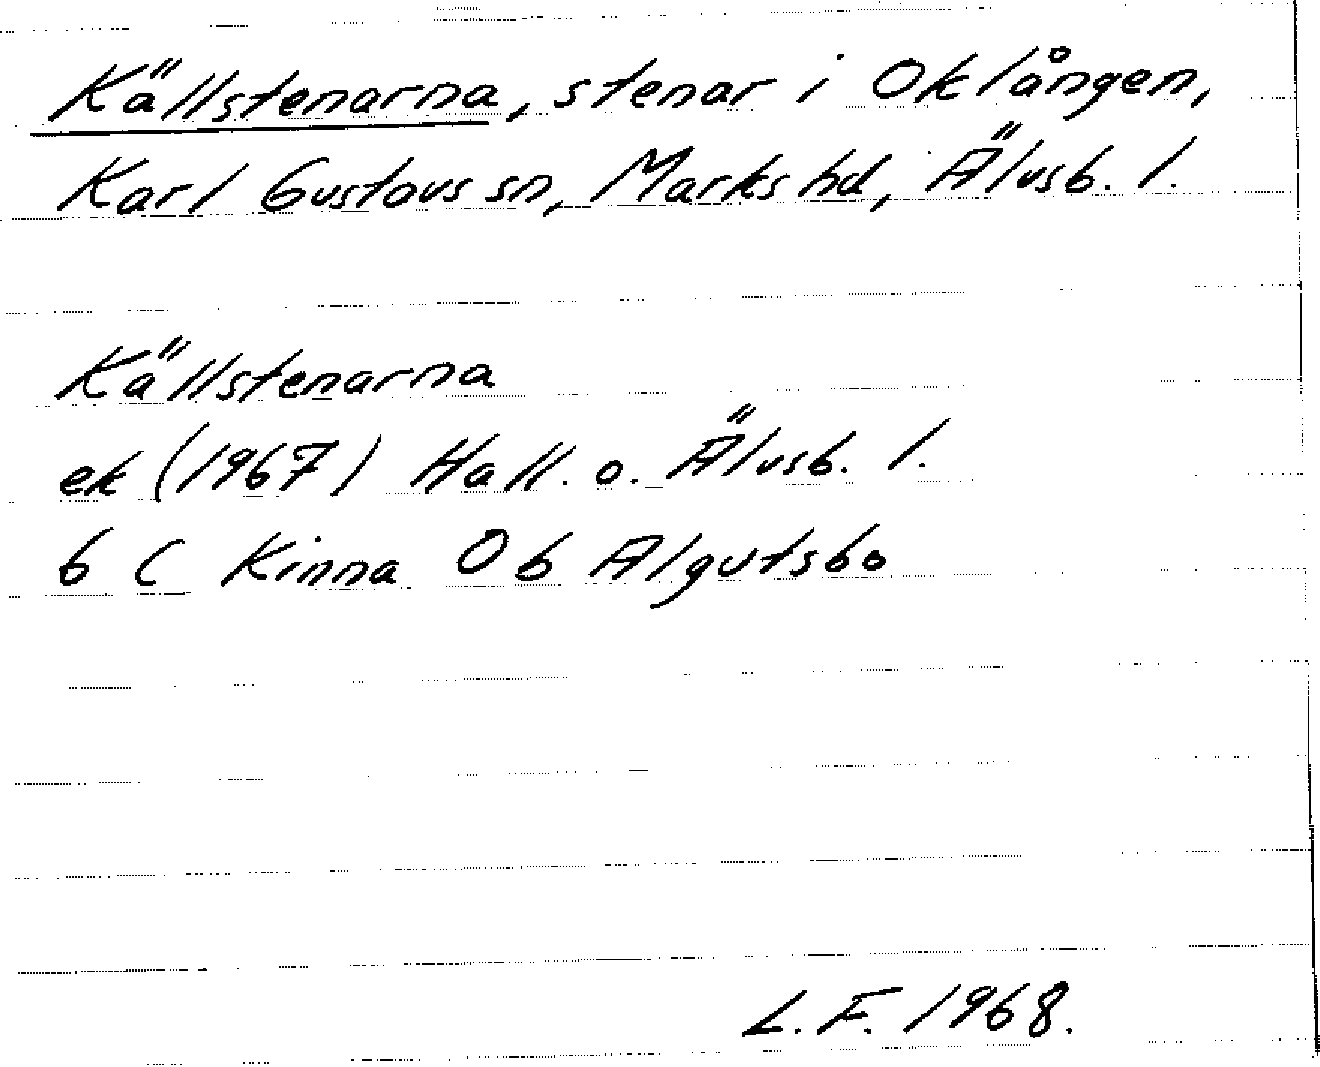 Källstenarna, stenar i Oklången,
Karl Gustavs sn, Marks hd, Älvsb. l.
Källstenarna
ek (1967) Hall. o. Älvsb. l.
6 C Kinna 0 b Algutsbo
L.F. 1968.